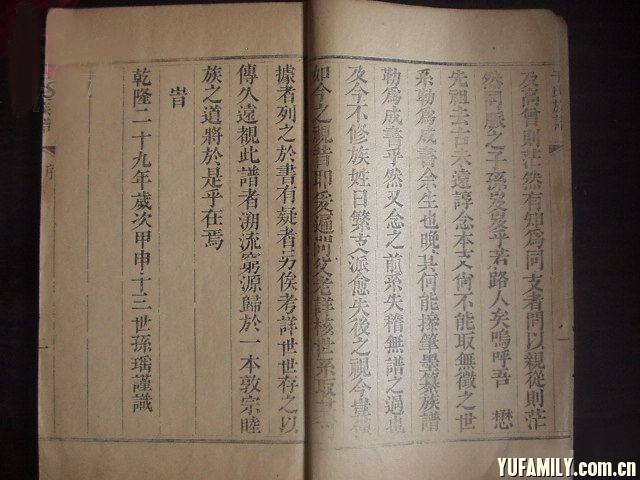 及高曾則茫然有知為同支者問以親從則茫
然同脈之子孫岌岌乎若路人矣嗚呼吾 懋
先祖去古未遠諄念本支尚不能取無徵之世
系勒為成書余生也晚其何能操筆墨纂族譜
勒為成書乎然又念之前系失稽無譜之過也
及今不修族姓日繁支派愈失後之視今豈
如今之視昔耶爰遍問父老詳核世系取
據者列之於書有疑者另俟考詳世世存之以
傳久遠覩此譜者溯流窮源歸於一本敦宗睦
族之道將於是乎在焉
旹
乾隆二十九年歲次甲申十三世孫瑤謹識
族譜
序
YUFAMILY.com.cn